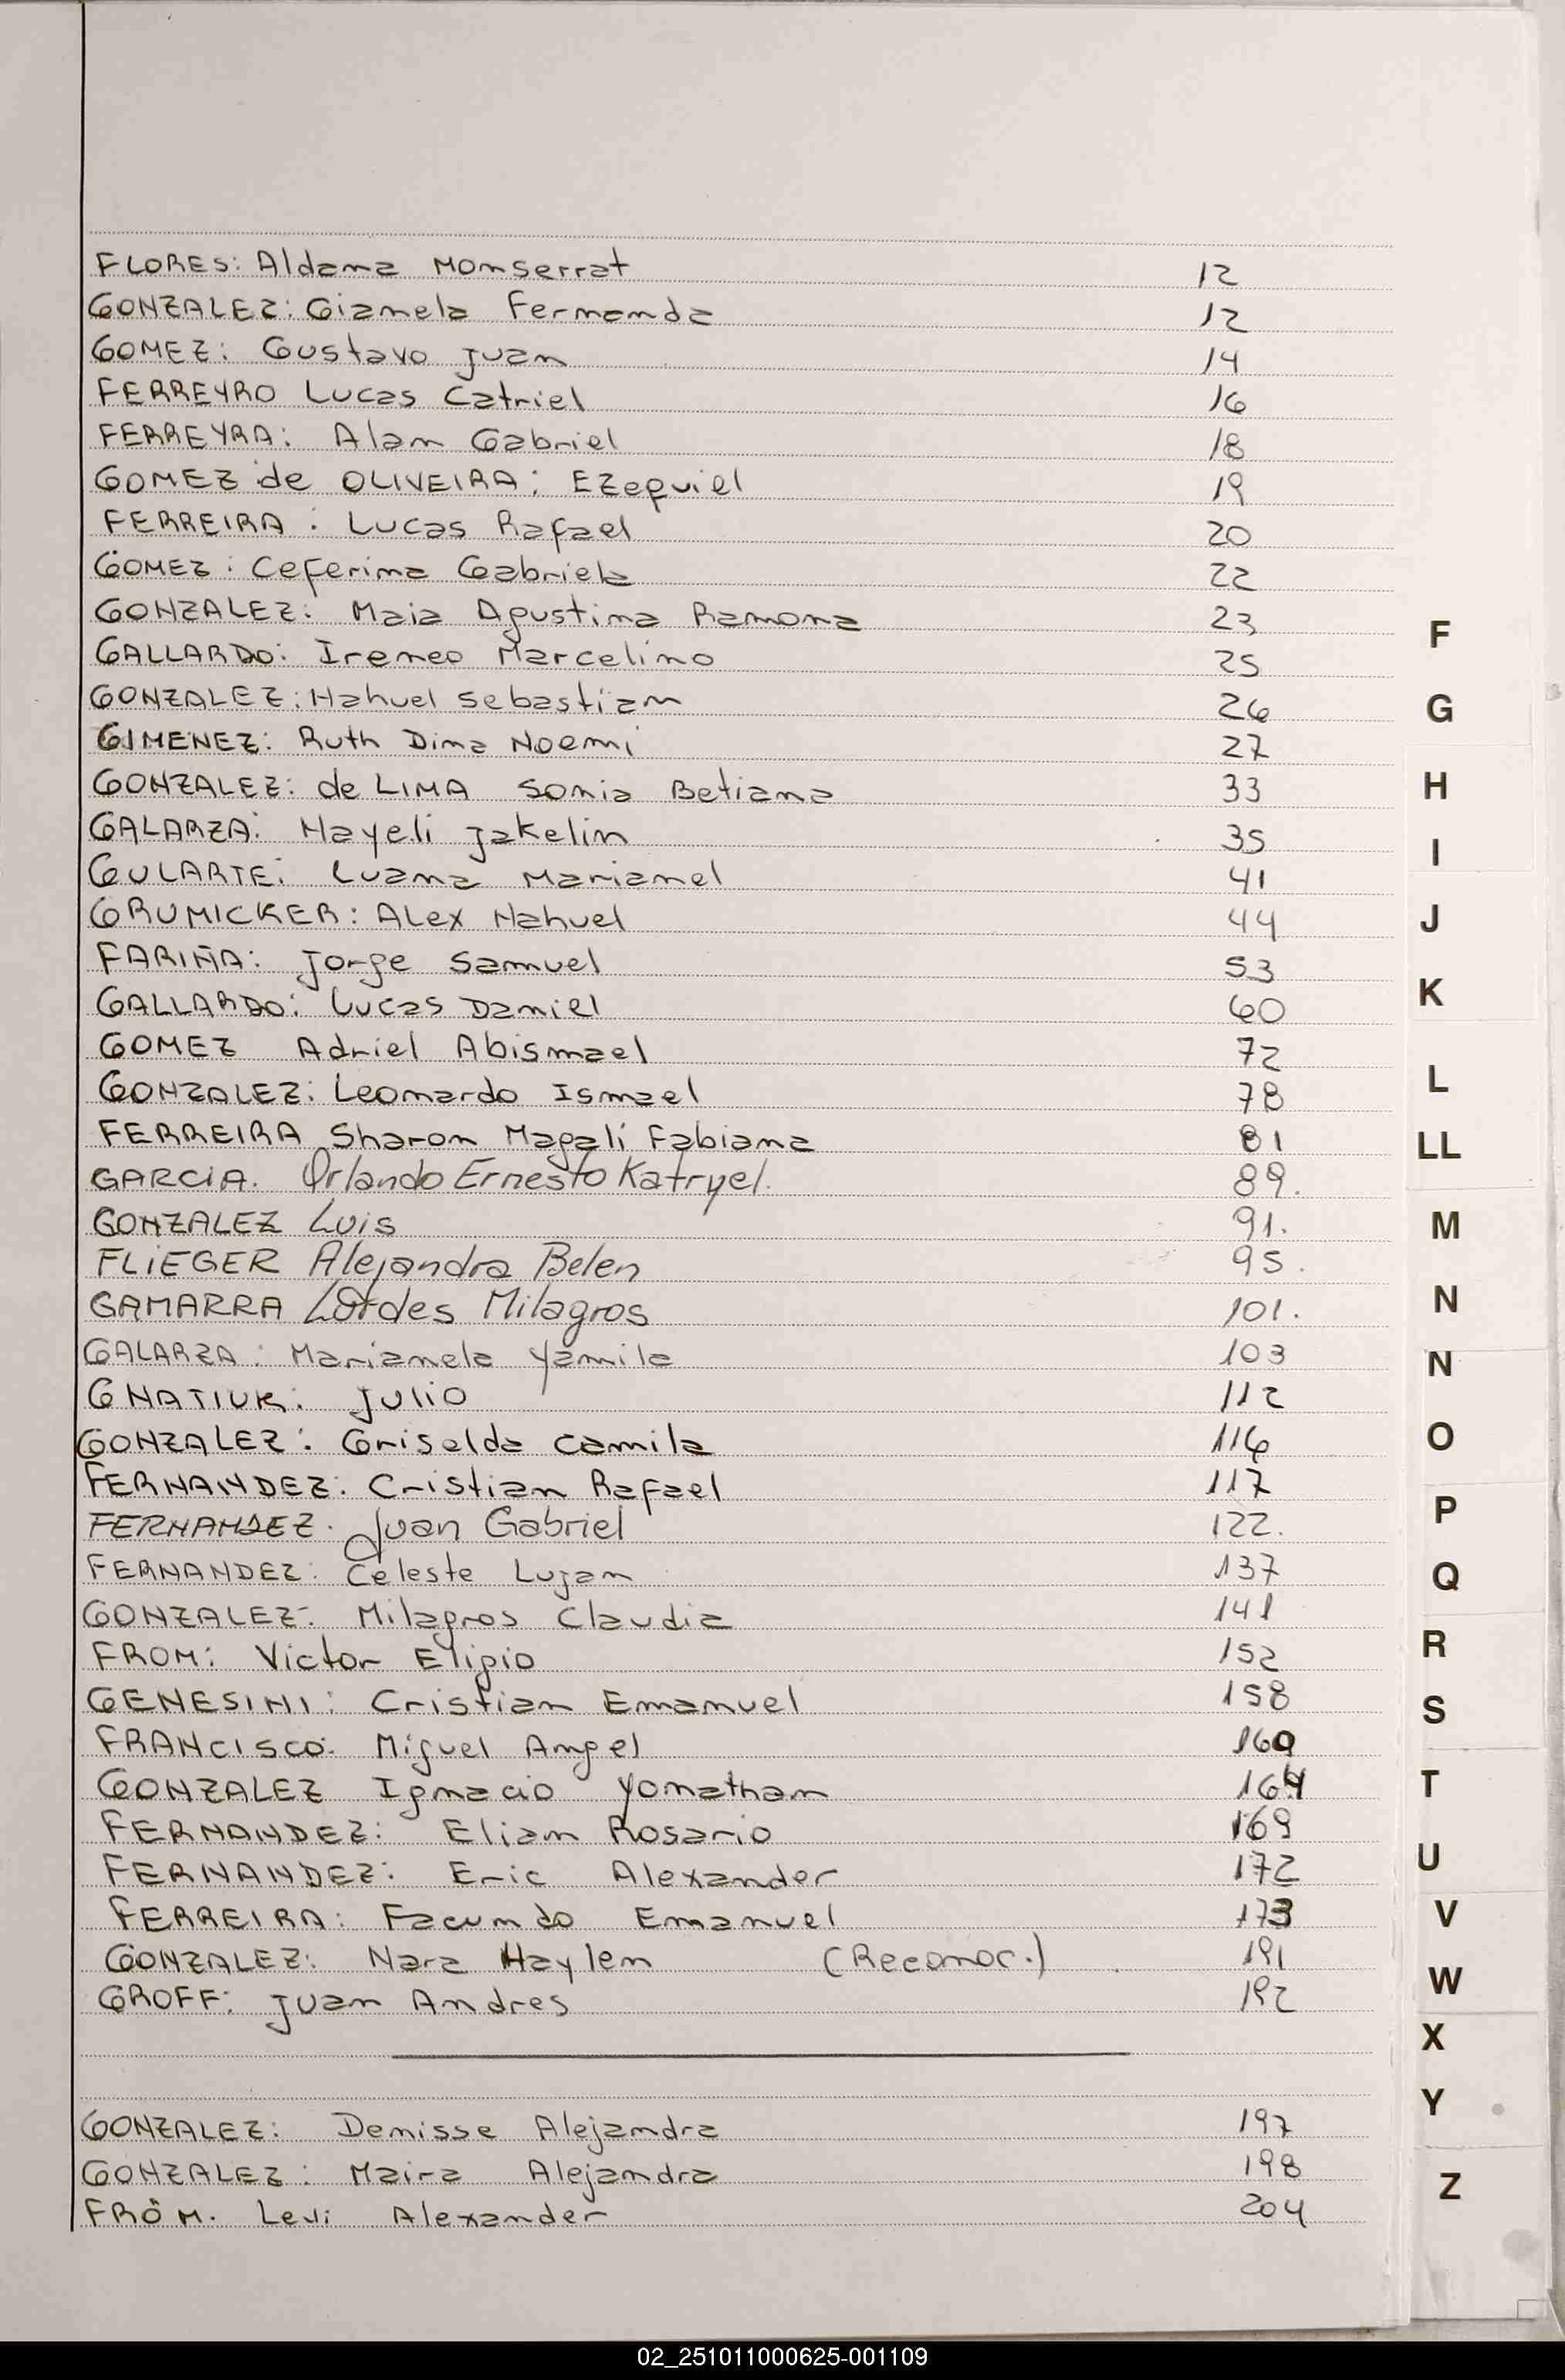 FLORES: Aldana Monserrat 12
GONZALEZ: Gianela Fernanda 12
GOMEZ: Gustavo Juan 14
FERREYRO Lucas Catriel 16
FERREYRA: Alan Gabriel 18
GOMEZ de OLIVEIRA: EZequiel 19
FERREIRA: Lucas Rafael 20
GOMEZ: Ceferina Gabriela 22
GONZALEZ: Maia Agustina Ramona 23
GALLARDO: Ireneo Marcelino 25
GONZALEZ: Nahuel Sebastian 26
GIMENEZ: Ruth Dina Noemi 27
GONZALEZ: de LIMA Sonia Betiana 33
GALARZA: Nayeli Jakelin 35
GULARTE: Luana Marianel 41
GRUNICKER: Alex Nahuel 44
FARIÑA: Jorge Samuel 53
GALLARDO: Lucas Daniel 60
GOMEZ Adriel Abismael 72
GONZALEZ: Leonardo Ismael 78
FERREIRA Sharon Magalí Fabiana 81
GARCIA. Orlando Ernesto Katryel. 89.
GONZALEZ Luis 91.
FLIEGER Alejandra Belen 95.
GAMARRA Milagros 101.
GALARZA: Marianela Yamila 103
GNATIUK: Julio 112
GONZALEZ: Griselda Camila 116
FERNANDEZ: Cristian Rafael 117
FERNANDEZ. Juan Gabriel 122.
FERNANDEZ: Celeste Lujan 137
GONZALEZ: Milagros Claudia 141
FROM: Victor Eligio 152
GENESINI: Cristian Emanuel 158
FRANCISCO: Miguel Angel 160
GONZALEZ Ignacio Yonathan 164
FERNANDEZ: Elian Rosario 169
FERNANDEZ: Eric Alexander 172
FERREIRA: Facundo Emanuel 173
GONZALEZ: Nara Haylen (Reconoc.) 191
GROFF: Juan Andres 192
GONZALEZ: Denisse Alejandra 197
GONZALEZ: Maira Alejandra 198
FRÖM. Levi Alexander 204
F
G
H
I
J
K
L
LL
M
N
N
O
P
Q
R
S
T
U
V
W
X
Y
Z
02_251011000625-001109